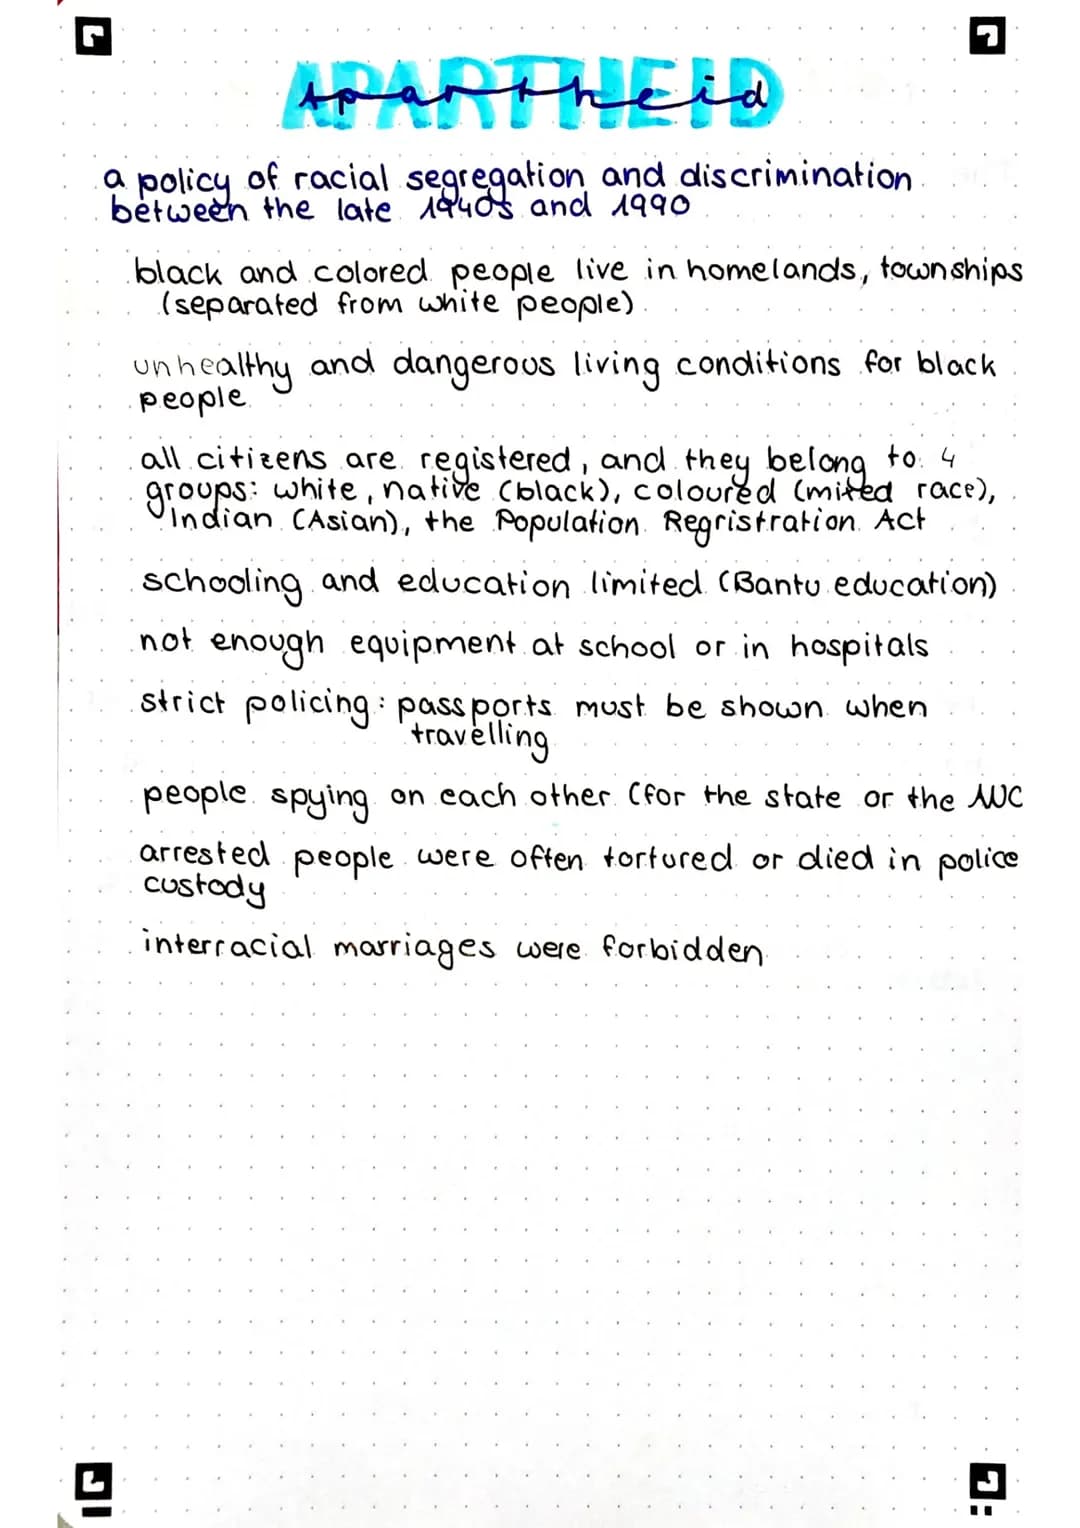 APARTHEID
Apartheid
a policy of racial segregation and discrimination
between the late 1940s and 1990
black and colored people live in homelands, townships
(separated from white people)
unhealthy and dangerous living conditions for black
people
all citizens are registered, and they belong to 4
groups: white, native (black), coloured (mixed race),
Indian (Asian), the Population Regristration Act
schooling and education limited (Bantu education)
not enough equipment at school or in hospitals
strict policing: passports must be shown when
travelling
people spying on each other (for the state or the AUC
arrested people were often tortured or died in police
custody
interracial marriages were forbidden